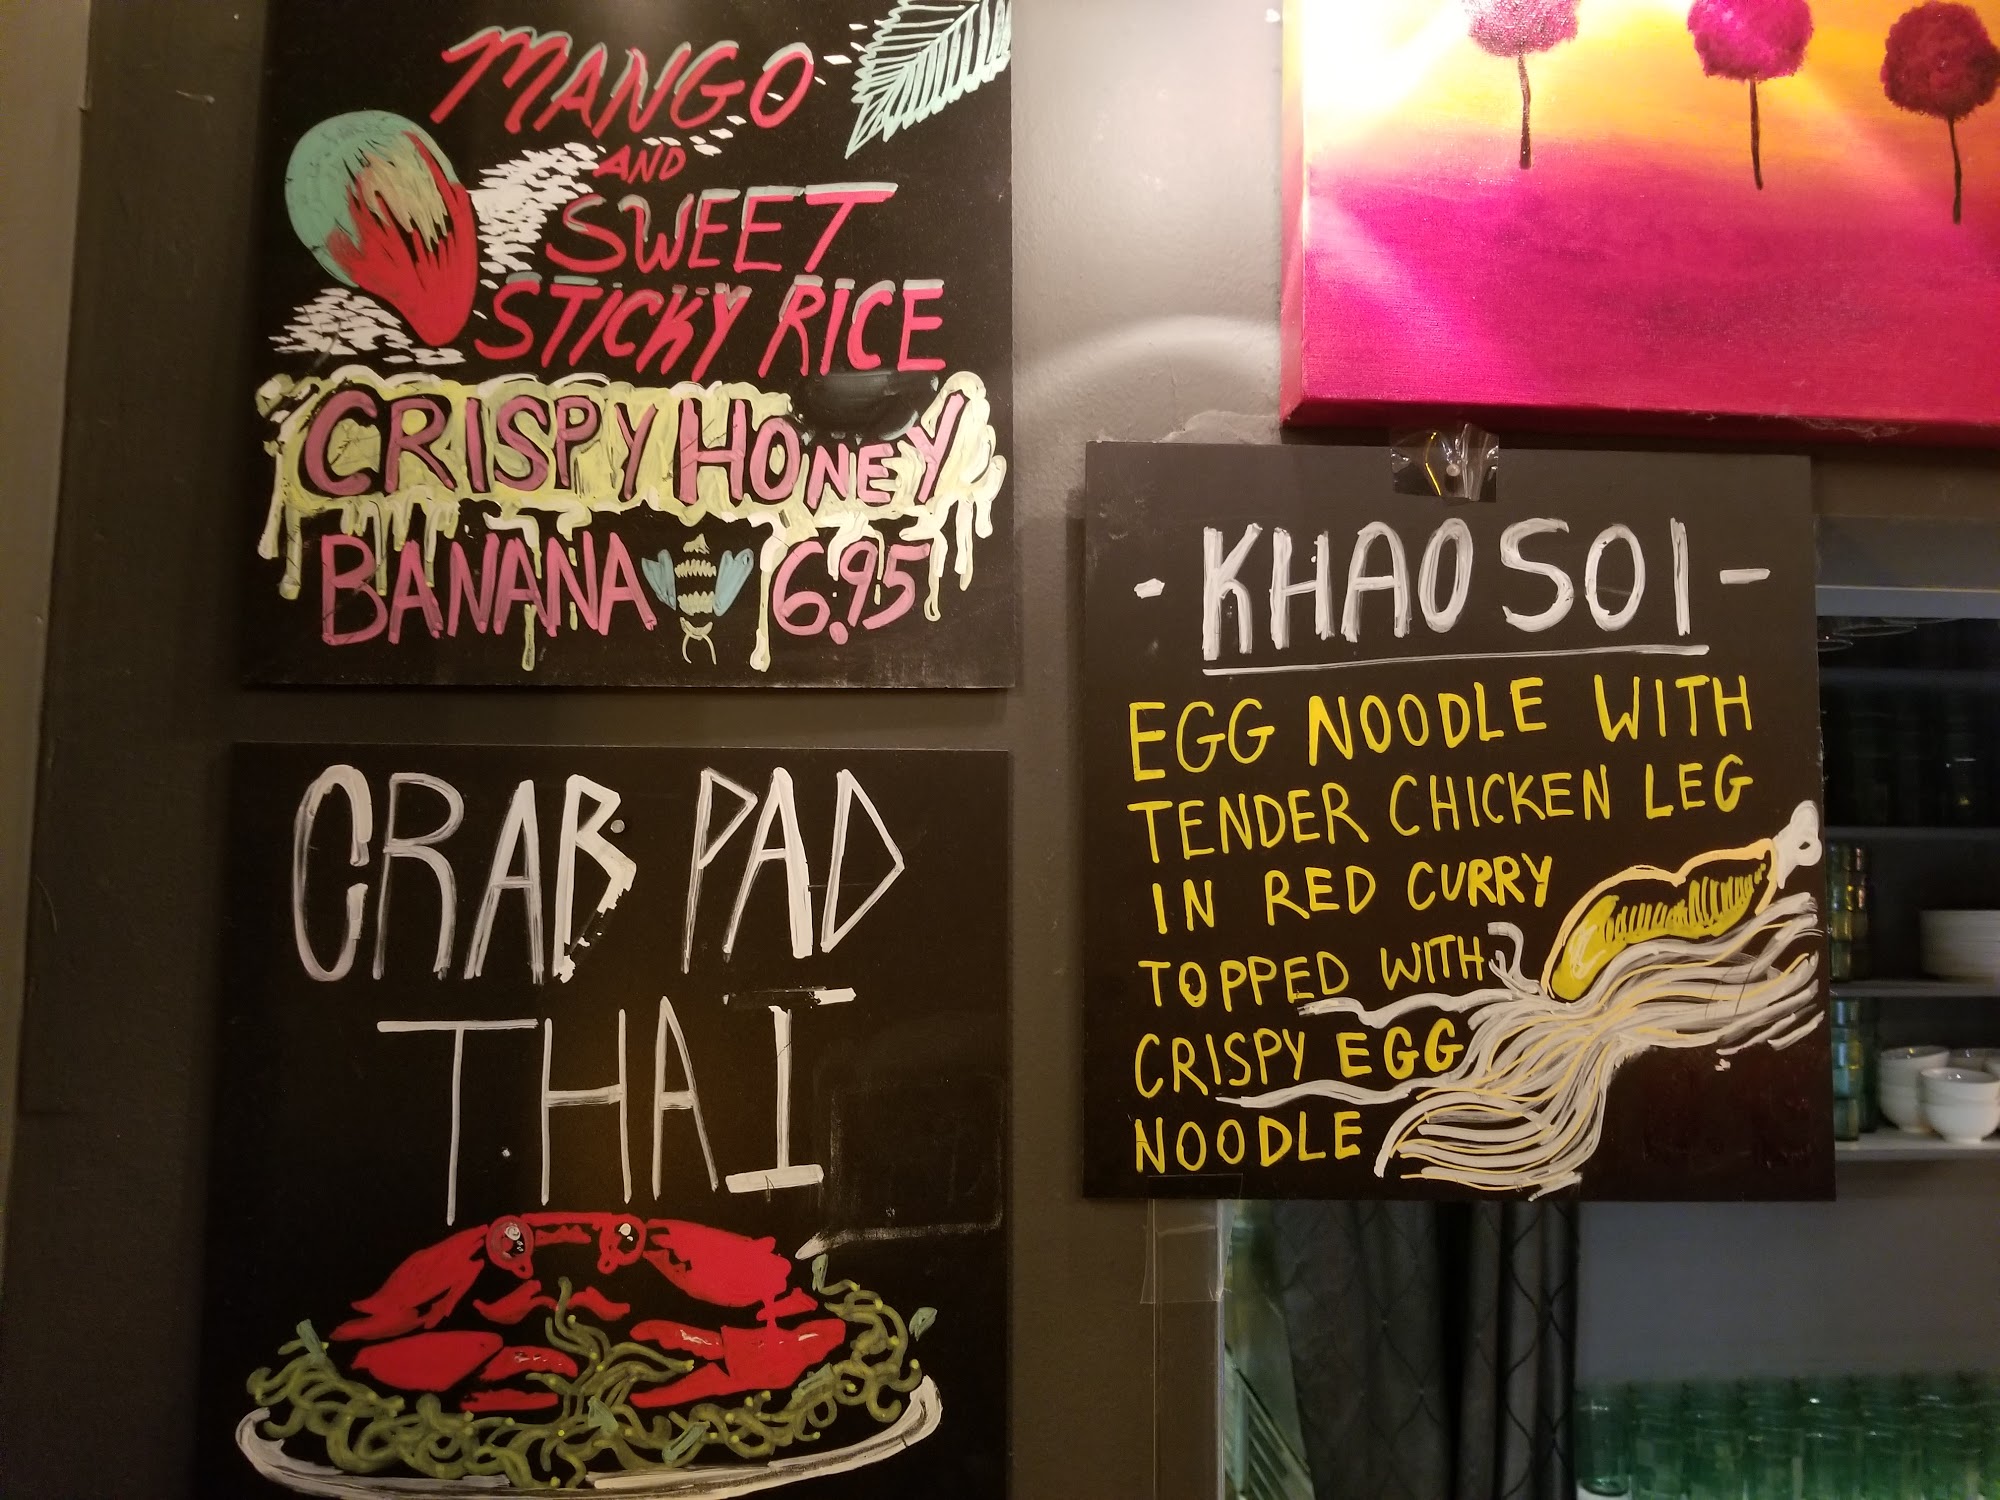 MANGO
AND
SWEET
STICKY RICE
CRISPY HONEY
BANANA 6.95
CRAB PAD
THAI
-KHAO SOI-
EGG NOODLE WITH
TENDER CHICKEN LEG
IN RED CURRY
TOPPED WITH
CRISPY EGG
NOODLE